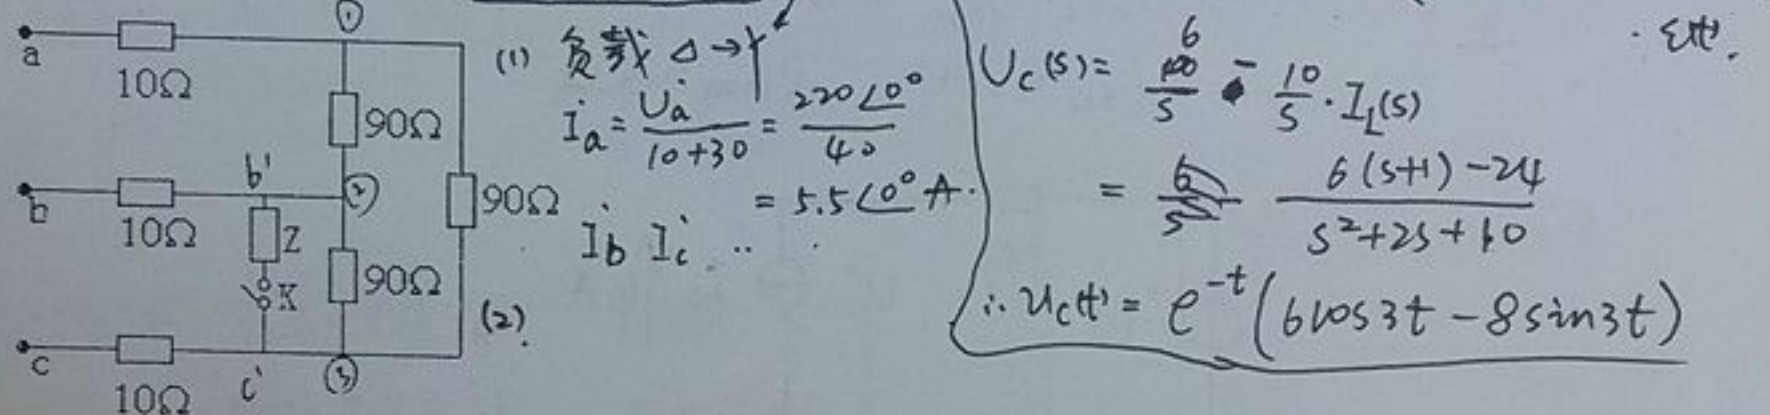 ①
a
10Ω
90Ω
b'
②
b
10Ω
Z
90Ω
K
90Ω
c
10Ω
c'
③
(1) 负载 Δ→Y
İa = U̇a / (10+30) = 220∠0° / 40
= 5.5∠0° A.
İb İc ...
(2).
Uc(s) = 6/s - 10/s · I_L(s)
= (6(s+1) - 24) / (s²+2s+10)
∴ uc(t) = e^{-t}(6cos3t - 8sin3t)